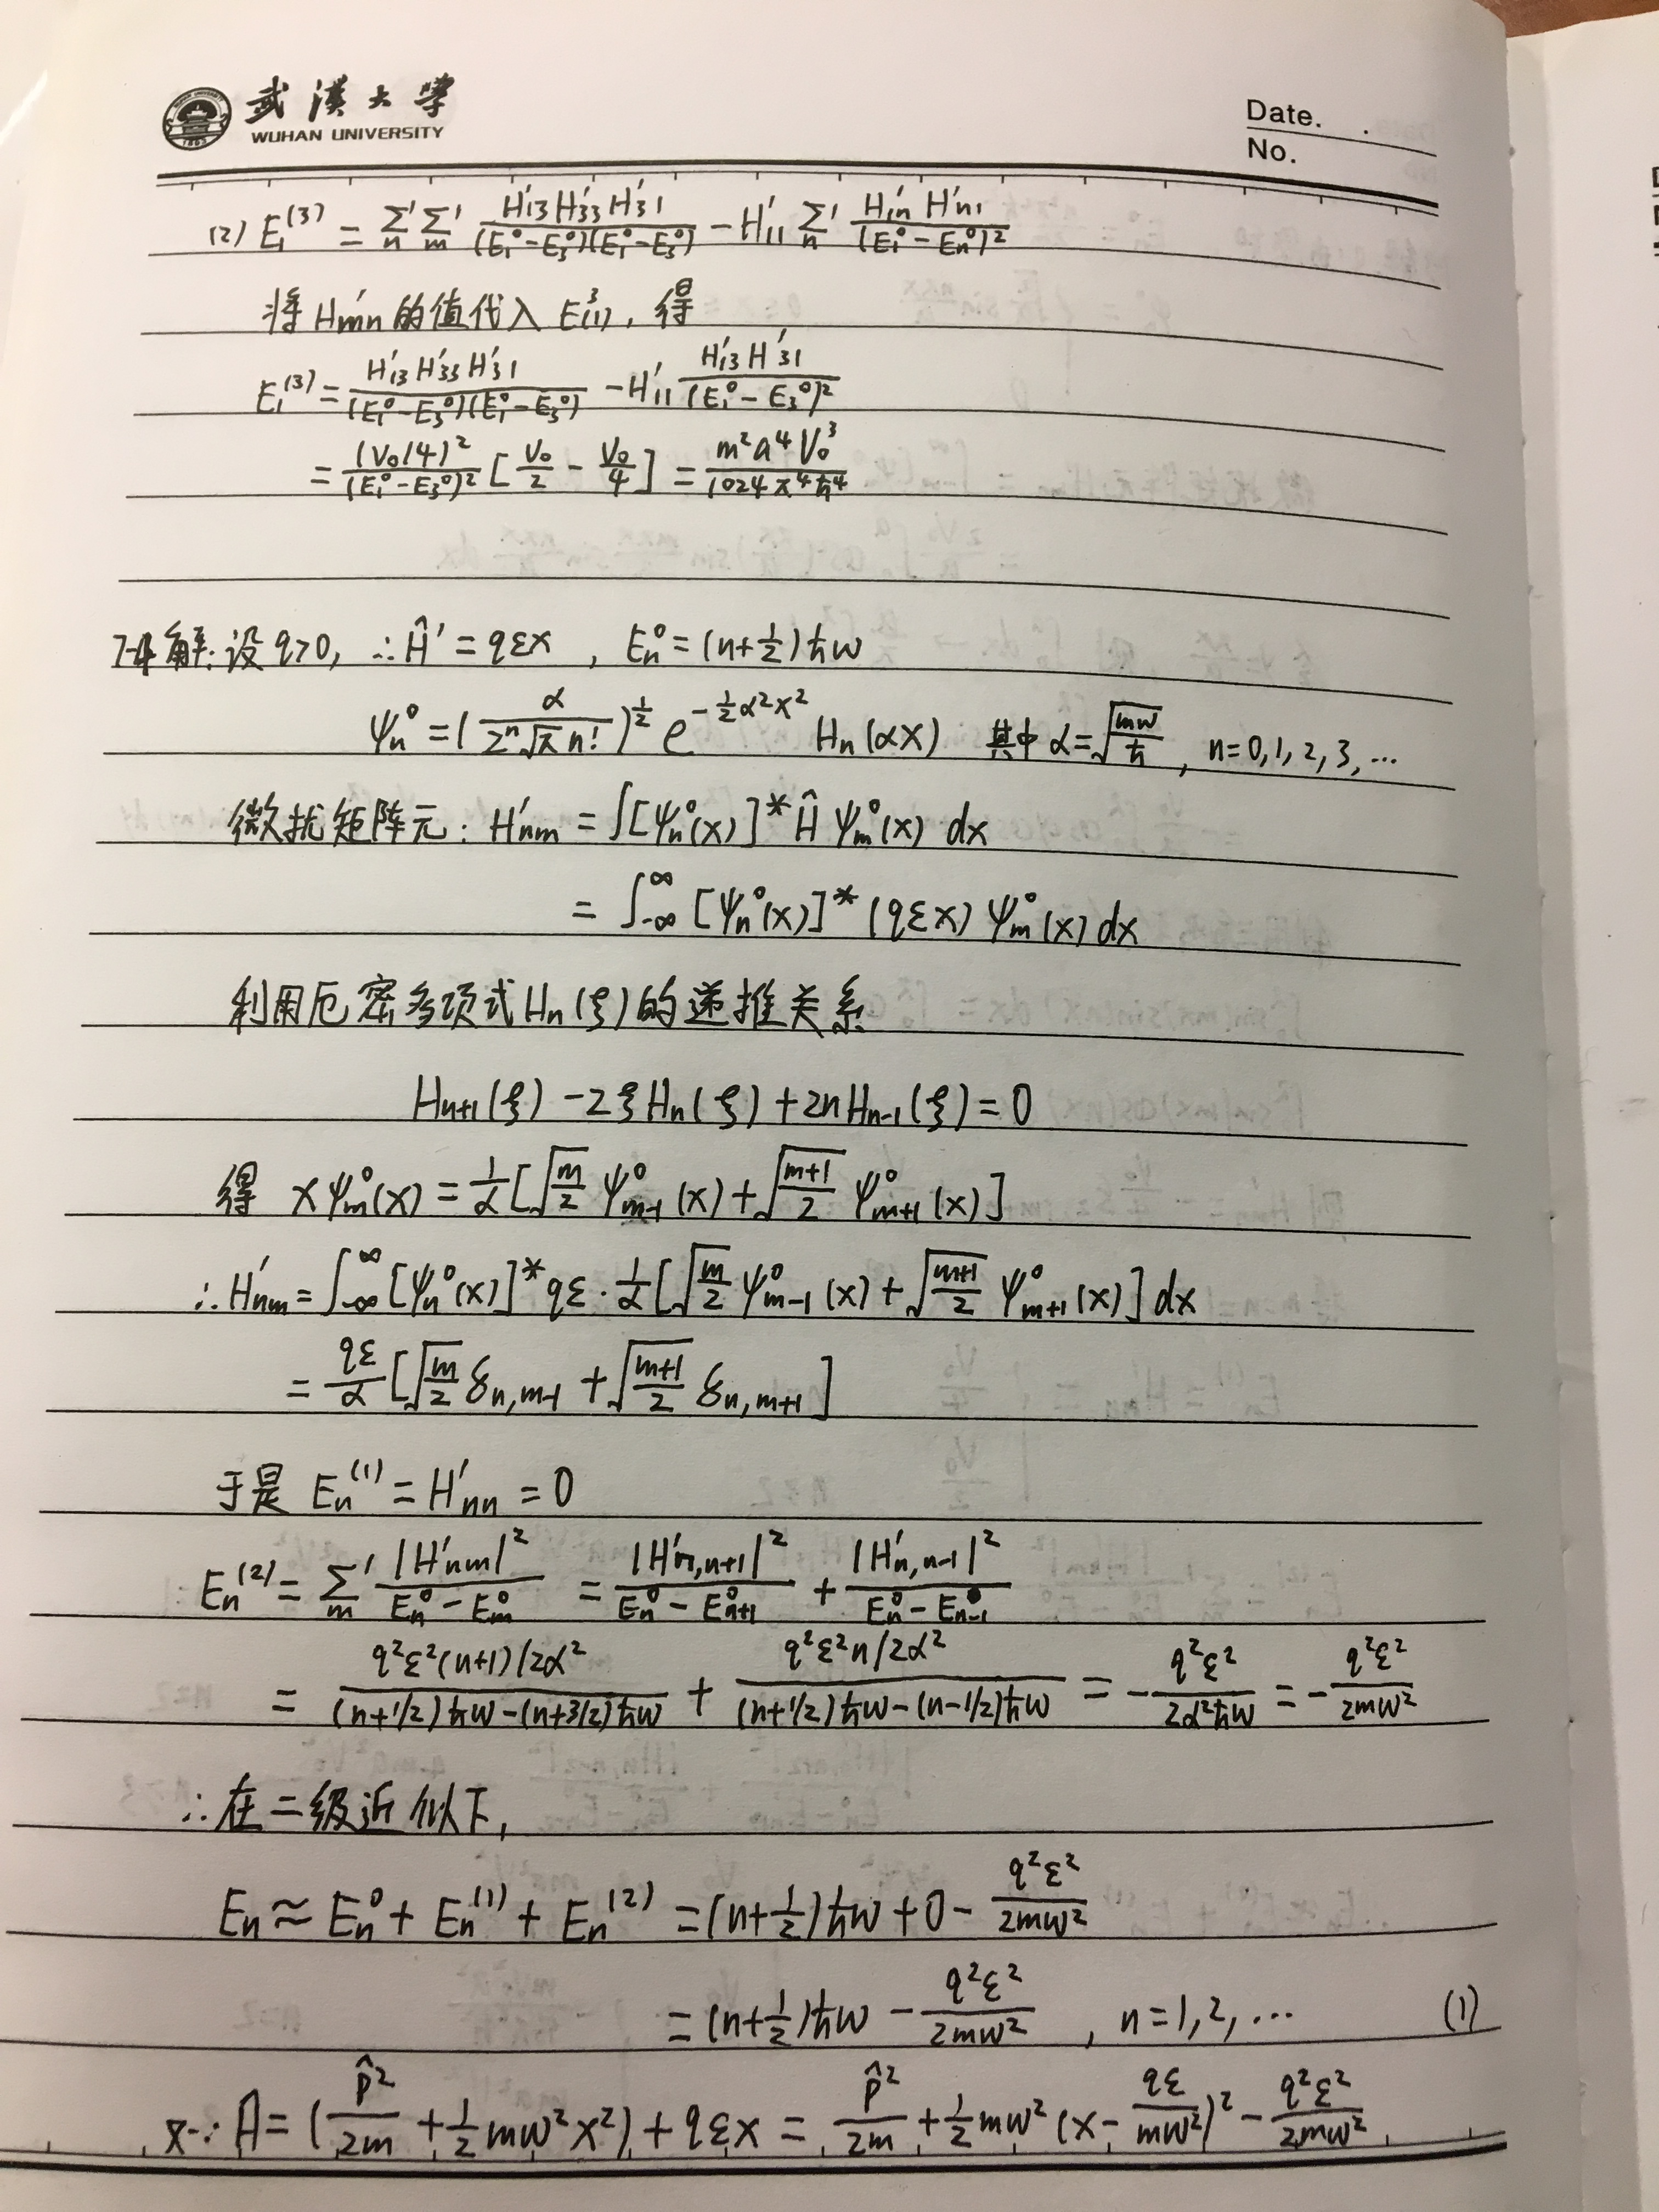 武汉大学
WUHAN UNIVERSITY
Date. .
No.
(2) E₁⁽³⁾ = Σ'ₙ Σ'ₘ H'₁₃H'₃₃H'₃₁ / (E₁⁰-E₃⁰)(E₁⁰-E₃⁰) - H'₁₁ Σ'ₙ H'₁ₙ H'ₙ₁ / (E₁⁰-Eₙ⁰)²
将 H'mn 的值代入 E³₍₁₎, 得
E₁⁽³⁾ = H'₁₃H'₃₃H'₃₁ / (E₁⁰-E₃⁰)(E₁⁰-E₃⁰) - H'₁₁ H'₁₃H'₃₁ / (E₁⁰-E₃⁰)²
= (V₀/4)² / (E₁⁰-E₃⁰)² [V₀/2 - V₀/4] = m²a⁴V₀³ / 1024π⁴ħ⁴
7-4 解: 设 q>0, ∴ Ĥ' = qεx , Eₙ⁰ = (n+1/2)ħω
ψₙ⁰ = (α / 2ⁿ√π n!)^{1/2} e^{-1/2 α²x²} Hₙ(αx) 其中 α = √(mω/ħ) , n=0,1,2,3,…
微扰矩阵元: H'nm = ∫[ψₙ⁰(x)]* Ĥ ψₘ⁰(x) dx
= ∫_{-∞}^{∞} [ψₙ⁰(x)]* (qεx) ψₘ⁰(x) dx
利用厄密多项式 Hₙ(ξ) 的递推关系
Hₙ₊₁(ξ) - 2ξHₙ(ξ) + 2nHₙ₋₁(ξ) = 0
得 xψₘ⁰(x) = 1/α [√(m/2) ψ⁰ₘ₋₁(x) + √((m+1)/2) ψ⁰ₘ₊₁(x)]
∴ H'nm = ∫_{-∞}^{∞} [ψₙ⁰(x)]* qε · 1/α [√(m/2) ψ⁰ₘ₋₁(x) + √((m+1)/2) ψ⁰ₘ₊₁(x)] dx
= qε/α [√(m/2) δ_{n,m-1} + √((m+1)/2) δ_{n,m+1}]
于是 Eₙ⁽¹⁾ = H'nn = 0
Eₙ⁽²⁾ = Σ'ₘ |H'nm|² / (Eₙ⁰-Eₘ⁰) = |H'n,n+1|² / (Eₙ⁰-E⁰ₙ₊₁) + |H'n,n-1|² / (Eₙ⁰-E⁰ₙ₋₁)
= q²ε²(n+1)/2α² / ((n+1/2)ħω-(n+3/2)ħω) + q²ε²n/2α² / ((n+1/2)ħω-(n-1/2)ħω) = - q²ε²/2α²ħω = - q²ε²/2mω²
∴ 在二级近似下,
Eₙ ≈ Eₙ⁰ + Eₙ⁽¹⁾ + Eₙ⁽²⁾ = (n+1/2)ħω + 0 - q²ε²/2mω²
= (n+1/2)ħω - q²ε²/2mω² , n=1,2,… (1)
又∵ Ĥ = (p̂²/2m + 1/2 mω²x²) + qεx = p̂²/2m + 1/2 mω²(x - qε/mω²)² - q²ε²/2mω²